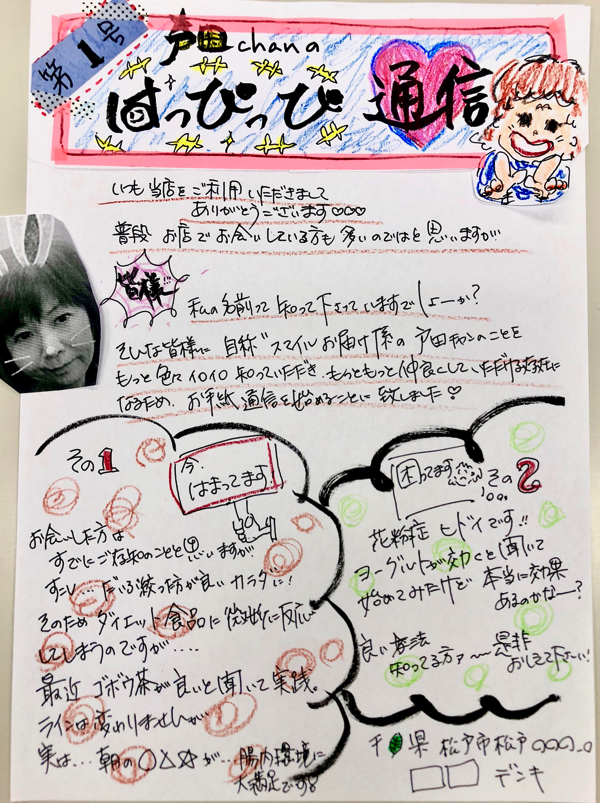 第1号
戸田chanの
はっぴっぴ通信
いつも当店をご利用いただきまして
ありがとうございます♡♡♡
普段お店でお会いしている方も多いのではと思いますが…
皆様…
私の名前って知って下さっていますでしょーか?
そんな皆様に自称"スマイルお届け係の戸田チャンのことを
もっと色々イロイロ知っていただき、もっともっと仲良くしていただける
なるため、お手紙通信を始めることに致しました!
その1
今、はまってます!
お会いした方は
すでにご存知のことと思いますが
すこし…だいぶ絞った方が良いカラダに!
そのためダイエット食品に徹底的に反応
してしまうのですが….
最近ゴボウ茶が良いと聞いて実践。
ラインは変わりませんが
実は…朝の○△☆が…腸内環境に
大満足です!
困ってます
その2
花粉症ヒドイです!!
ヨーグルトが効くと聞いて
始めてみたけど本当に効果
あるのかなー?
良い療法
知ってる方ァ〜〜是非
おしえて下さーい!
千葉県松戸市松戸○○○-○
□□デンキ